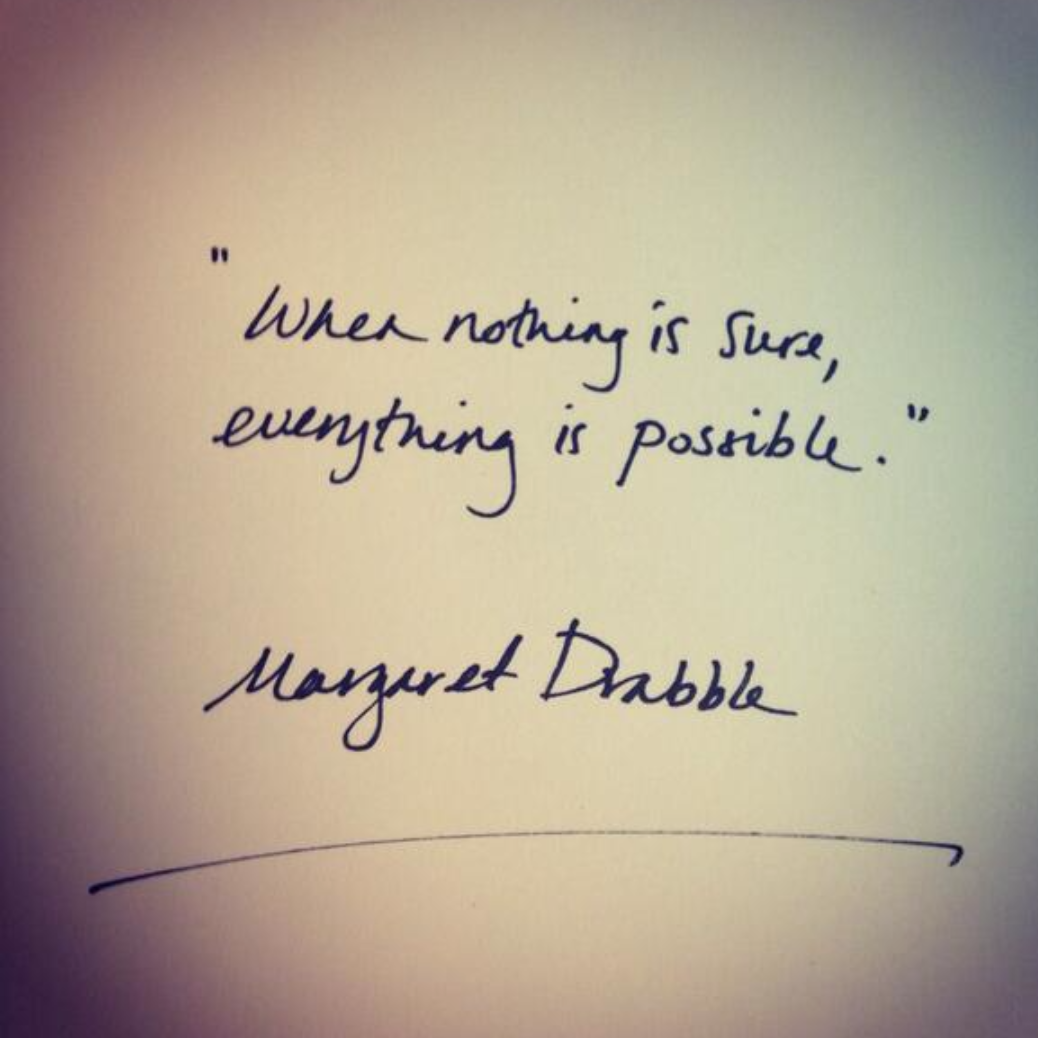 "When nothing is sure,
everything is possible."
Margaret Drabble